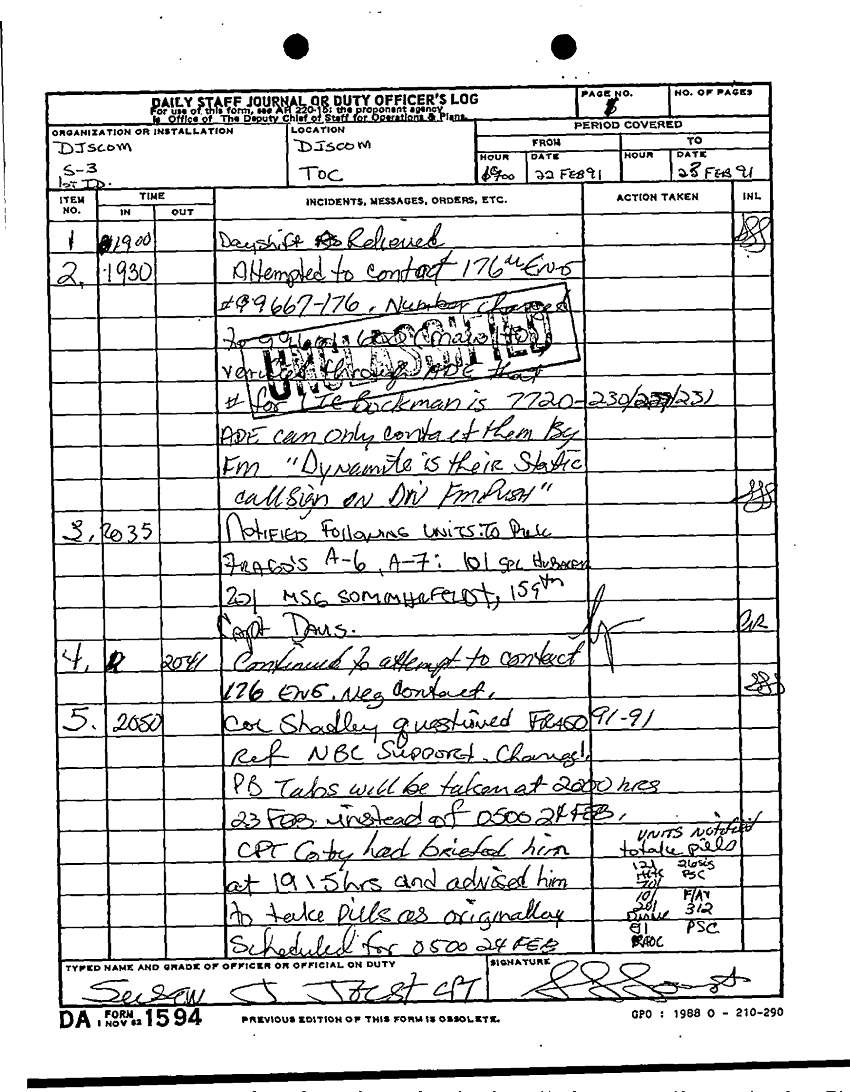 DAILY STAFF JOURNAL OR DUTY OFFICER'S LOG
For use of this form, see AR 220-15; the proponent agency
is Office of The Deputy Chief of Staff for Operations & Plans.
PAGE NO.
NO. OF PAGES
ORGANIZATION OR INSTALLATION
DISCOM
S-3
1ST ID.
LOCATION
DISCOM
TOC
PERIOD COVERED
FROM
TO
HOUR
DATE
HOUR
DATE
1900
22 FEB 91
23 FEB 91
ITEM NO.
TIME
IN
OUT
INCIDENTS, MESSAGES, ORDERS, ETC.
ACTION TAKEN
INL
1 1900 Dayshift Relieved
2. 1930 Attempted to contact 176th ENG
#99667-176. Number changed
to
verified through ADE that
# for LTC Bockman is 7720-230/231
ADE can only contact them By
Fm "Dynamite is their Static
call sign on Div Fm Push"
UNCLASSIFIED
3. 2035 NOTIFIED FOLLOWING UNITS: TO Pick
FRAGO'S A-6, A-7: 101 SPC
201 MSG 159th
Capt Davis.
4. 2041 Continued to attempt to contact
176 ENG. Neg Contact.
5. 2050 Col Shadley questioned FRAGO 91-91
Ref NBC Support. Change!
PB Tabs will be taken at 2000 hrs
23 FEB instead of 0500 24 FEB.
CPT Coty had briefed him
at 1915hrs and advised him
to take pills as originallay
Scheduled for 0500 24 FEB
UNITS Notified
to take pills
121
HHC
701
101
201
F/AV
312
PSC
TYPED NAME AND GRADE OF OFFICER OR OFFICIAL ON DUTY
Susan J CPT
SIGNATURE
DA FORM 1 NOV 62 1594
PREVIOUS EDITION OF THIS FORM IS OBSOLETE.
GPO : 1988 O - 210-290